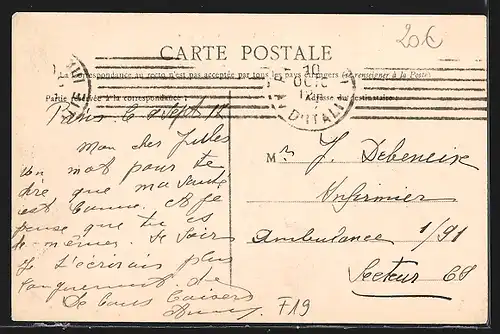 20€
CARTE POSTALE
La correspondance au recto n'est pas acceptée par tous les pays étrangers (se renseigner à la Poste)
Partie réservée à la correspondance
Adresse du destinataire
10
D'ITALIE
Paris le 9 Sept
Mon
un mot pour te
dire que ma santé
est bonne. et je
pense que tu es
de-même. Ce soir
je t'écrirais plus
longuement. de
Baisers
Mr J. Debeneix
Infirmier
Ambulance 1/91
Secteur 68
F19